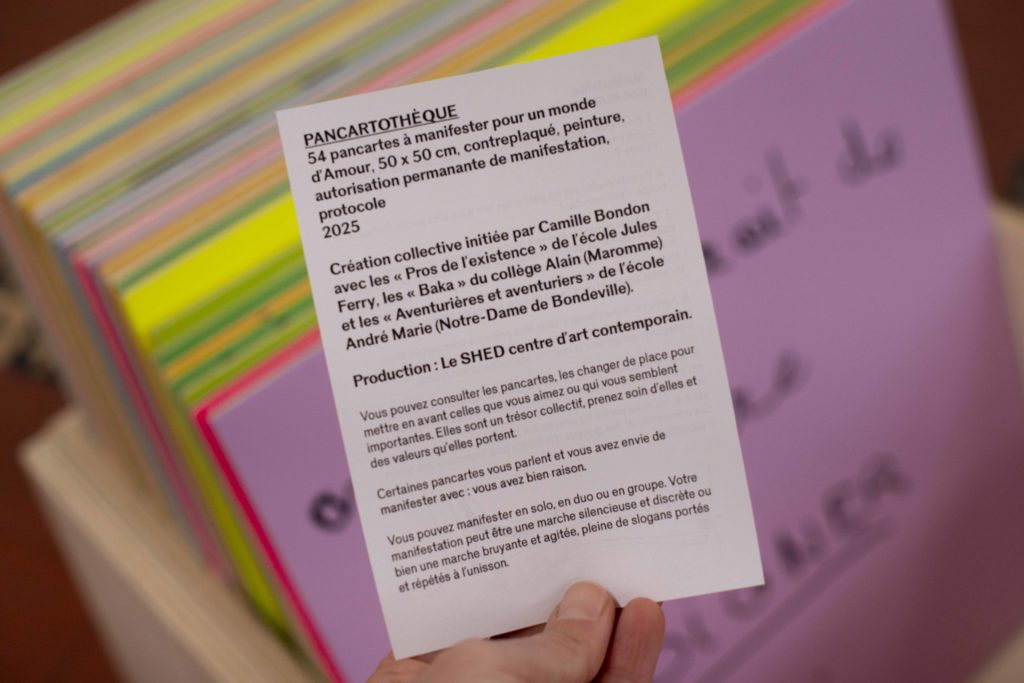 PANCARTOTHÈQUE
54 pancartes à manifester pour un monde
d'Amour, 50 x 50 cm, contreplaqué, peinture,
autorisation permanante de manifestation,
protocole
2025
Création collective initiée par Camille Bondon
avec les « Pros de l'existence » de l'école Jules
Ferry, les « Baka » du collège Alain (Maromme)
et les « Aventurières et aventuriers » de l'école
André Marie (Notre-Dame de Bondeville).
Production : Le SHED centre d'art contemporain.
Vous pouvez consulter les pancartes, les changer de place pour
mettre en avant celles que vous aimez ou qui vous semblent
importantes. Elles sont un trésor collectif, prenez soin d'elles et
des valeurs qu'elles portent.
Certaines pancartes vous parlent et vous avez envie de
manifester avec : vous avez bien raison.
Vous pouvez manifester en solo, en duo ou en groupe. Votre
manifestation peut être une marche silencieuse et discrète ou
bien une marche bruyante et agitée, pleine de slogans portés
et répétés à l'unisson.